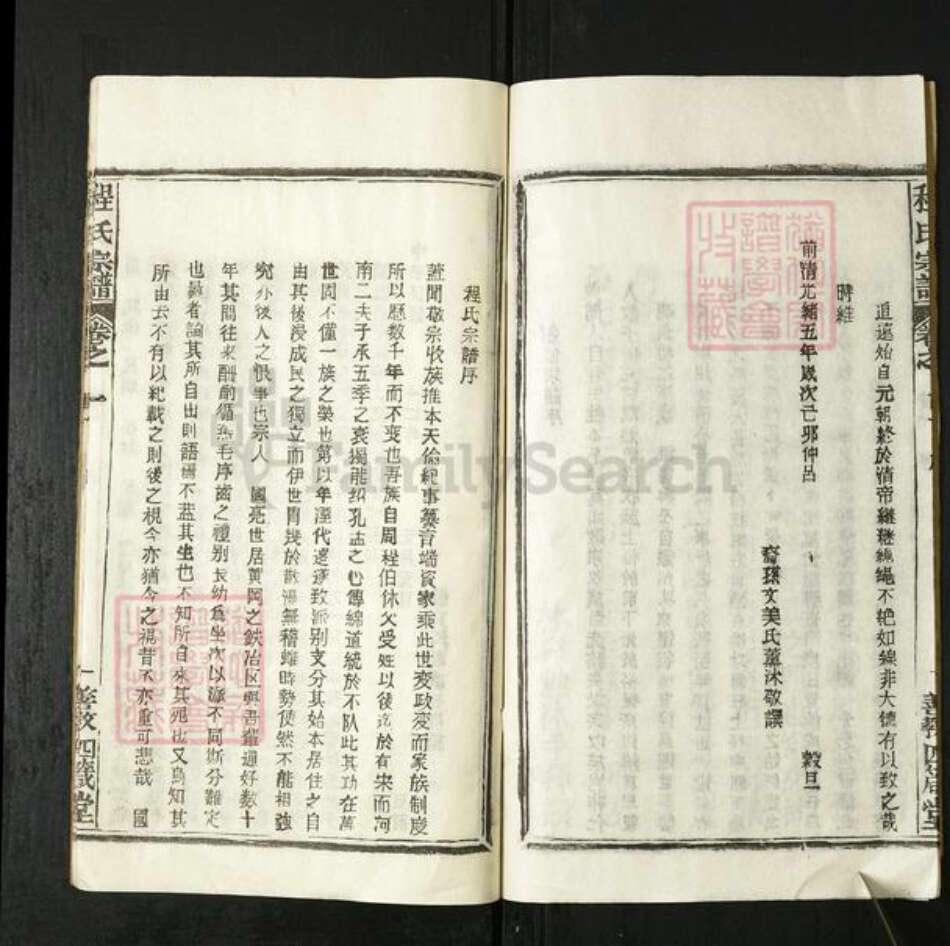 程氏宗譜
卷之一
道遠始自元朝終於清帝繼繼繩繩不艳如線非大德有以致之哉
時維
前清光緒五年歲次己邪仲呂 穀旦
裔孫文美氏薰沐敬譔
善教四箴堂
程氏宗譜序
蓋聞敬宗收族推本天倫紀事纂言端資家乘此世变政变而家族制度
所以歷数千年而不变也吾族自周程伯休父受姓以後迄於有宋而河
南二夫子承五季之衰獨能紹孔孟之心傳綿道統於不队此其功在萬
世固不僅一族之榮也第以年湮代遠遂致派别支分其始本居住之自
由其後浸成民之獨立而伊世胄幾於散漫無稽雖時勢使然不能相強
究亦後人之恨事也宗人 國亮世居黄岡之鉄冶区與吾輩通好数十
年其間往来酬酌循燕毛序齒之禮别长幼為坐次以派不同斯分難定
也識者論其所自出則語焉不盖其生也不知所自來其死也又烏知其
所由去不有以紀載之則後之視今亦猶今之視昔不亦重可悲哉 國
程氏宗譜
卷之一
一
善教四箴堂
FamilySearch